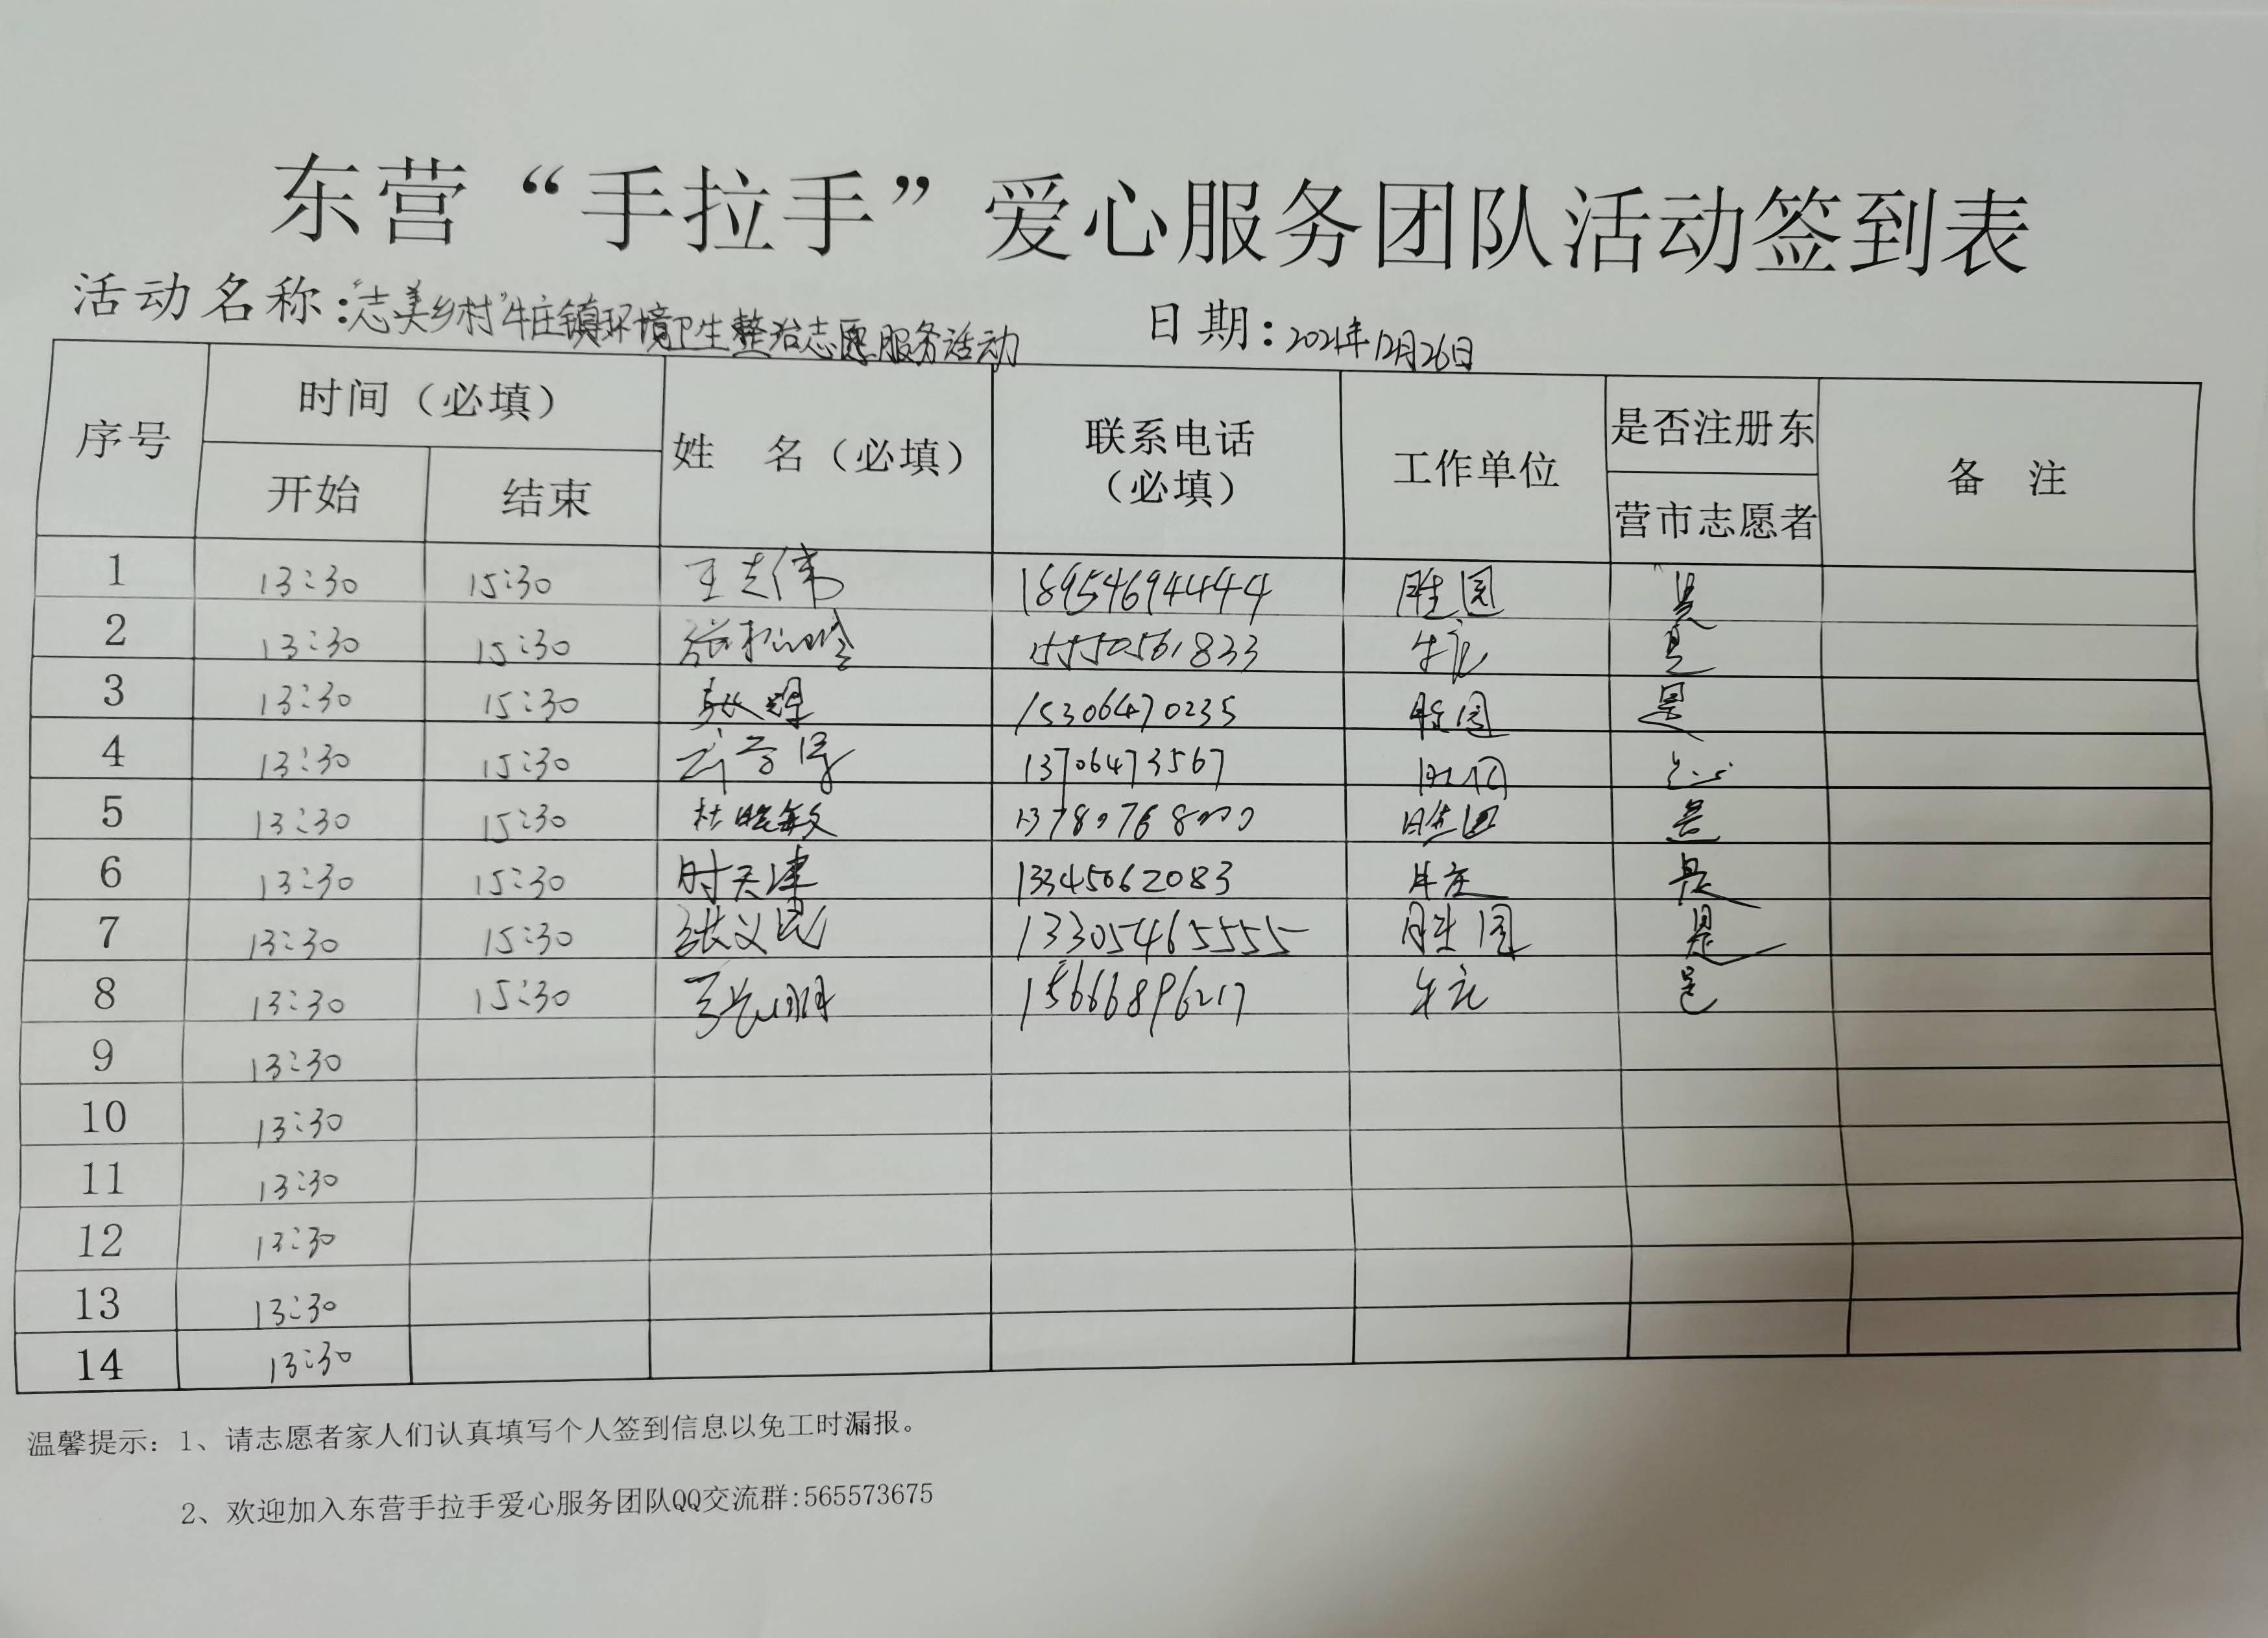 东营“手拉手”爱心服务团队活动签到表
活动名称:“志美乡村”牛庄镇环境卫生整治志愿服务活动 日期:2021年12月26日
序号 时间(必填) 开始 结束 姓 名(必填) 联系电话(必填) 工作单位 是否注册东营市志愿者 备 注
1 13:30 15:30 王志伟 18954694444 胜园 是
2 13:30 15:30 15550561833 牛庄 是
3 13:30 15:30 15306470235 胜园 是
4 13:30 15:30 13706473567 胜园 是
5 13:30 15:30 杜晓敏 胜园 是
6 13:30 15:30 时天津 13345062083 牛庄 是
7 13:30 15:30 张义民 13305465555 胜园 是
8 13:30 15:30 15666896217 牛庄 是
9 13:30
10 13:30
11 13:30
12 13:30
13 13:30
14 13:30
温馨提示:1、请志愿者家人们认真填写个人签到信息以免工时漏报。
2、欢迎加入东营手拉手爱心服务团队QQ交流群:565573675